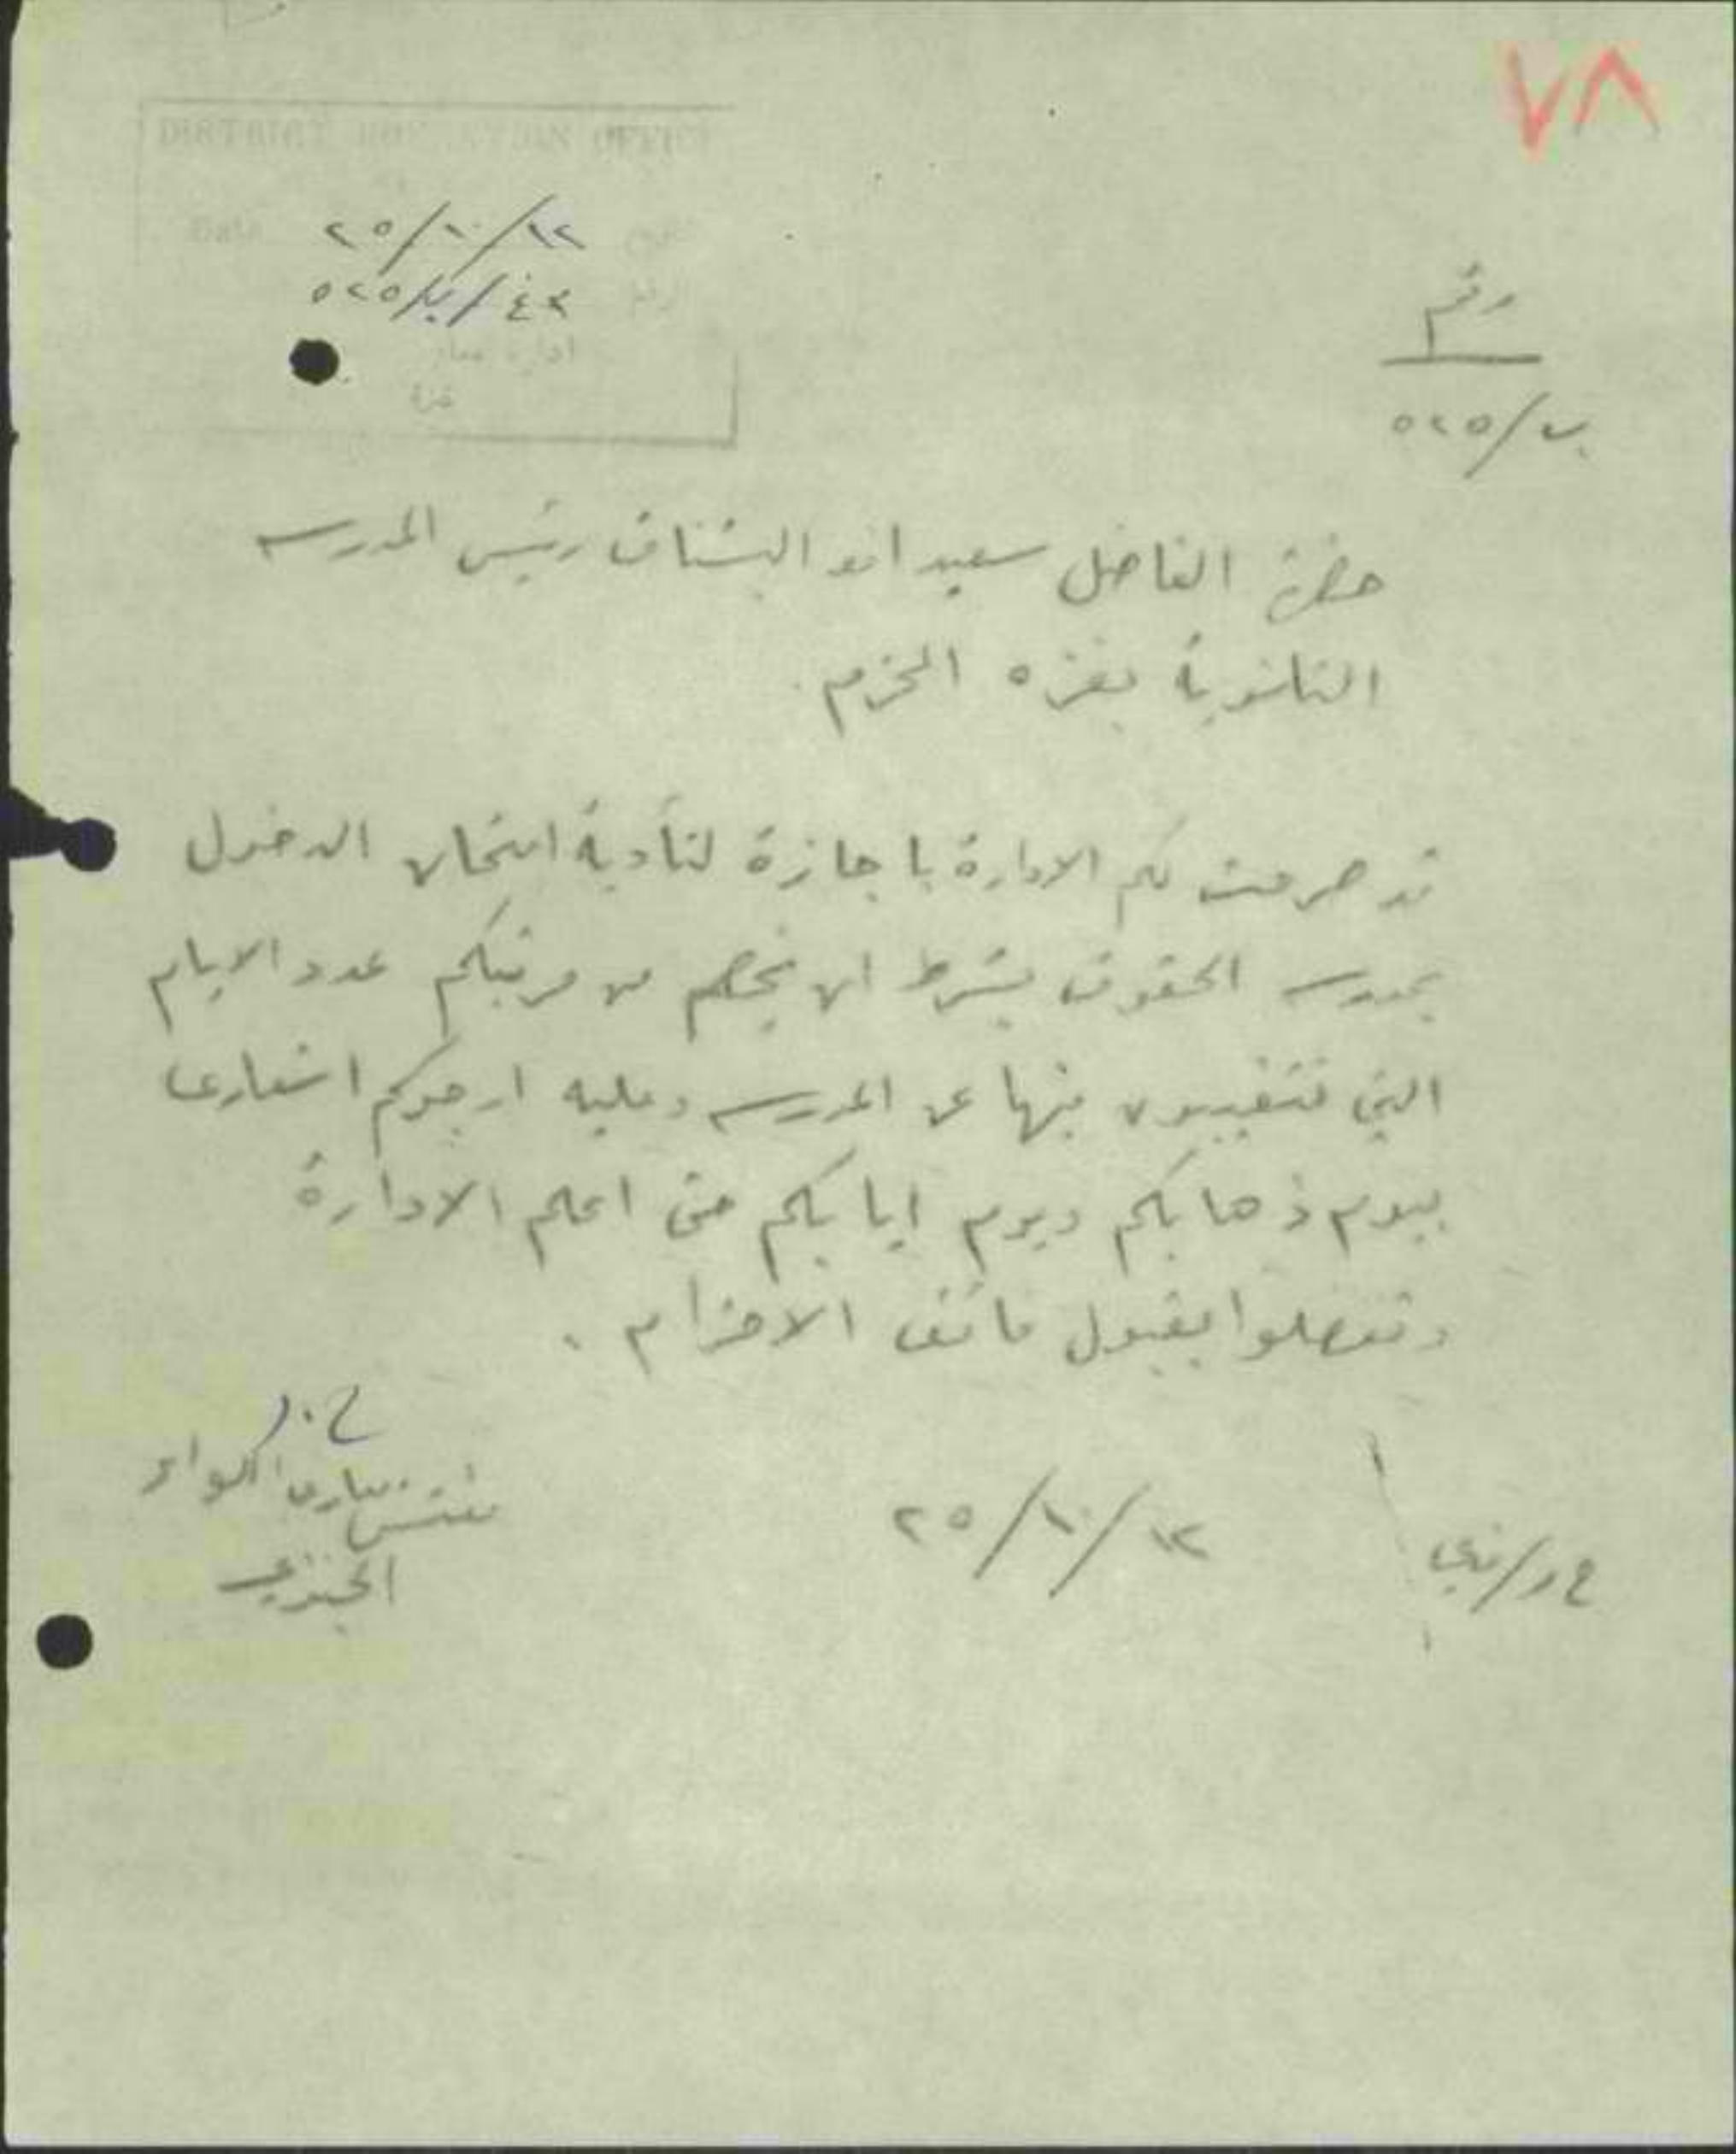 ٧٨
DISTRICT EDUCATION OFFICE
Date ٢٥/١٠/١٢
٥٢٥/ب/٤٣
ادارة معارف
غزة
رقم
ب/٥٢٥
حضرة الفاضل سعيد افندي رئيس المدرسه
الثانوية بغزه المحترم.
قد صرحت لكم الادارة باجازة لتأدية امتحان الدخول
بمدرسه الحقوق بشرط ان يخصم من مرتبكم عدد الايام
التي تتغيبون فيها عن المدرسه وعليه ارجوكم اشعاري
بيوم ذهابكم ويوم ايابكم حتى اعلم الادارة
وتفضلوا بقبول فائق الاحترام .
مفتش معارف اللواء
الجنوبي
٢٥/١٠/١٢